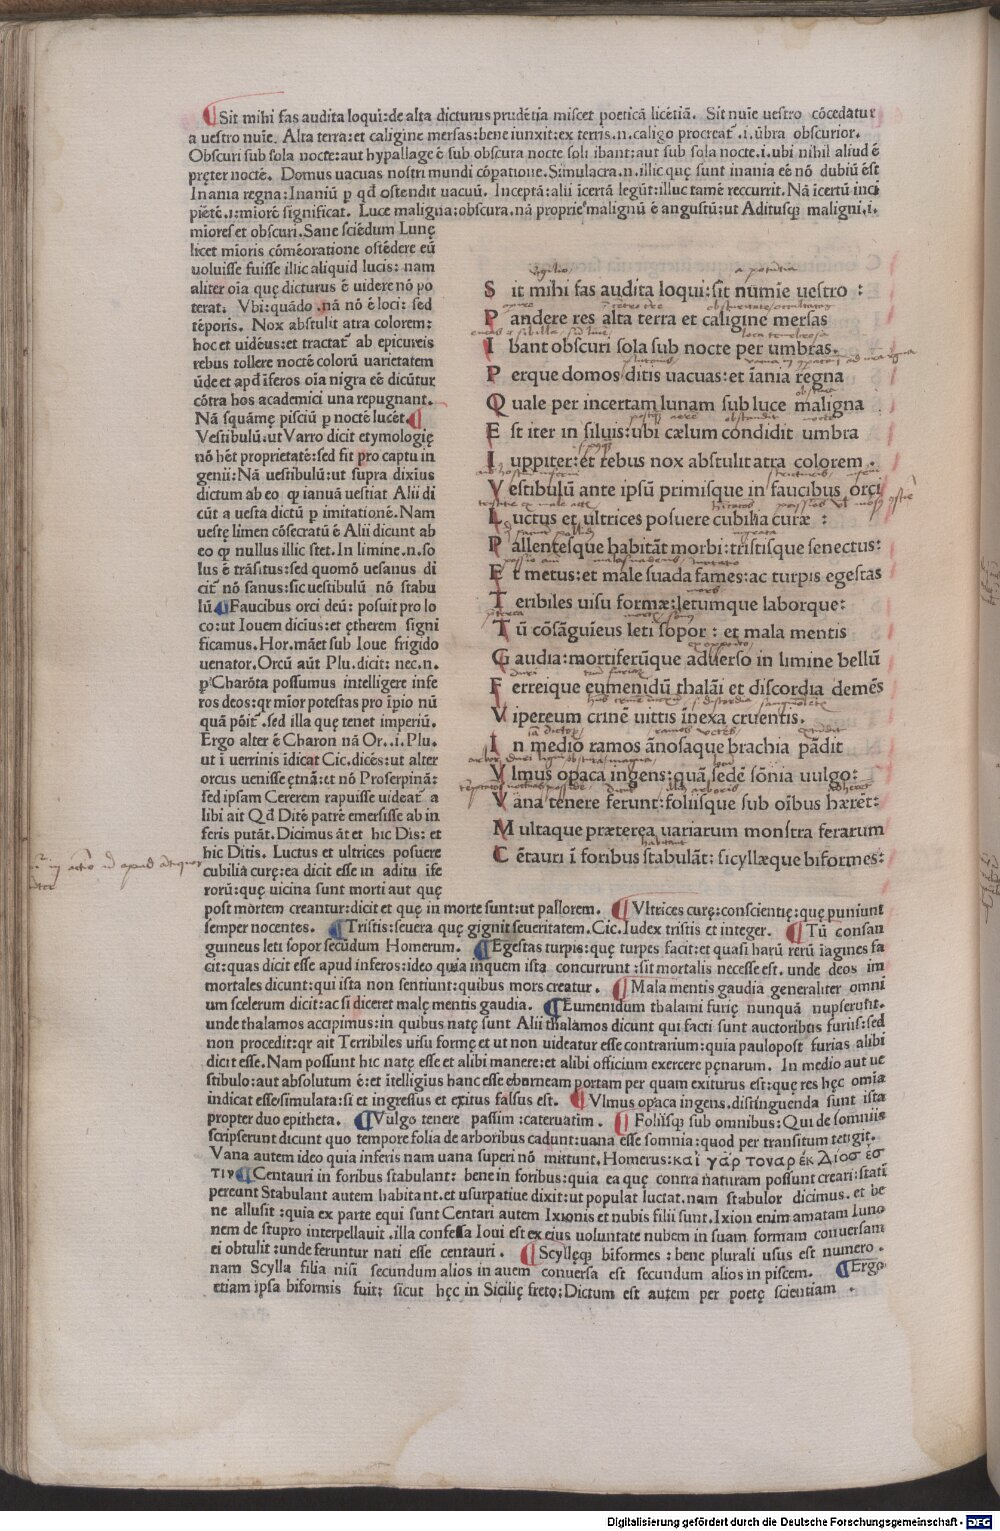 ¶Sit mihi fas audita loqui:de alta dicturus prudētia miscet poeticā licētiā. Sit nuīe uestro cōcedatur
a uestro nuīe. Alta terra:et caligine mersas:bene iunxit:ex terris.n.caligo procreat᷑.i.ūbra obscurior.
Obscuri sub sola nocte:aut hypallage ē sub obscura nocte soli ibant:aut sub sola nocte.i.ubi nihil aliud ē
pręter noctē. Domus uacuas nostri mundi cōpatione. Simulacra.n.illic quę sunt inania eē nō dubiū ēst
Inania regna:Inaniū p qđ ostendit uacuū. Inceptā:alii īcertā legūt:illuc tamē reccurrit. Nā īcertū inci
piētē.i:miorē significat. Luce maligna:obscura.nā proprie malignū ē angustū:ut Aditusqꝫ maligni.i.
miores et obscuri.Sane sciēdum Lunę
licet mioris cōmēoratione ostēdere eū
uoluisse fuisse illic aliquid lucis: nam
aliter oīa quę dicturus ē uidere nō po
terat. Vbi:quādo .nā nō ē loci: sed
tēporis. Nox abstulit atra colorem:
hoc et uidēus:et tractat᷑ ab epicureis
rebus tollere noctē colorū uarietatem
ūde et apđ īferos oīa nigra eē dicūtur
cōtra hos academici una repugnant.
Nā squāmę pisciū p noctē lucēt.¶
Vestibulū.ut Varro dicit etymologię
nō hēt proprietatē:sed fit pro captu in
genii:Nā uestibulū:ut supra dixius
dictum ab eo qꝫ ianuā uestiat Alii di
cūt a uesta dictū p imitationē.Nam
uestę limen cōsecratū ē Alii dicunt ab
eo qꝫ nullus illic stet.In limine.n.so
lus ē trāsitus:sed quomō uesanus di
cit᷑ nō sanus:sic uestibulū nō stabu
lū¶Faucibus orci deū: posuit pro lo
co:ut Iouem dicīus:et ętherem signi
ficamus.Hor.māet sub Ioue frigido
uenator.Orcū aūt Plu.dicit: nec.n.
p Charōta possumus intelligere infe
ros deos:qr mīor potestas pro īpio nū
quā pōit᷑.sed illa quę tenet imperiū.
Ergo alter ē Charon nā Or..i.Plu.
ut ī uerrinis īdicat Cic.dicēs:ut alter
orcus uenisse ętnā:et nō Proserpinā:
sed ipsam Cererem rapuisse uideat᷑ a
libi ait Qđ Ditē patrē emersisse ab in
feris putāt.Dicimus āt et hic Dis: et
hic Ditis. Luctus et ultrices posuere
cubilia curę:ea dicit esse in aditu īfe
rorū:quę uicina sunt morti aut quę
S it mihi fas audita loqui:sit numīe uestro :
P andere res alta terra et caligine mersas
I bant obscuri sola sub nocte per umbras.
P erque domos ditis uacuas:et īania regna
Q uale per incertam lunam sub luce maligna
E st iter in siluis:ubi cælum condidit umbra
I uppiter:et rebus nox abstulit atra colorem .
V estibulū ante ipsū primisque in faucibus orci
L uctus et ultrices posuere cubilia curæ :
P allentesque habitāt morbi:tristisque senectus:
E t metus:et male suada fames:ac turpis egestas
T eribiles uisu formæ:letumque laborque:
T ū cōsāguīeus leti sopor : et mala mentis
G audia:mortiferūque aduerso in limine bellū
F erreique eumenidū thalāi et discordia demēs
V ipereum crinē uittis īnexa cruentis.
I n medio ramos ānosaque brachia pādit
V lmus opaca ingens:quā sedē sōnia uulgo:
V ana tenere ferunt:foliisque sub oībus hærēt:
M ultaque præterea uariarum monstra ferarum
C ētauri ī foribus stabulāt: sicyllæque biformes:
post mortem creantur:dicit et quę in morte sunt:ut pallorem. ¶Vltrices curę:conscientię:quę puniunt
semper nocentes. ¶Tristis:seuera quę gignit seueritatem.Cic.Iudex tristis et integer. ¶Tū consan
guineus leti sopor secūdum Homerum. ¶Egestas turpis:quę turpes facit:et quasi harū rerū īagines fa
cit:quas dicit esse apud inferos:ideo quia inquem ista concurrunt :sit mortalis necesse est. unde deos im
mortales dicunt:qui ista non sentiunt:quibus mors creatur. ¶Mala mentis gaudia generaliter omni
um scelerum dicit:ac si diceret malę mentis gaudia. ¶Eumenidum thalami furię nunquā nupserunt.
unde thalamos accipimus:in quibus natę sunt Alii thalamos dicunt qui facti sunt auctoribus furiis:sed
non procedit:qr ait Terribiles uisu formę et ut non uideatur esse contrarium:quia paulopost furias alibi
dicit esse.Nam possunt hic natę esse et alibi manere:et alibi officium exercere pęnarum. In medio aut ue
stibulo:aut absolutum ē:et ītelligius hanc esse eburneam portam per quam exiturus est:quę res hęc omīa
indicat esse simulata:si et ingressus et exitus falsus est. ¶Vlmus opaca ingens.distinguenda sunt ista
propter duo epitheta. ¶Vulgo tenere passim :cateruatim. ¶Foliisqꝫ sub omnibus:Qui de somniis
scripserunt dicunt quo tempore folia de arboribus cadunt:uana esse somnia:quod per transitum tetigit.
Vana autem ideo quia inferis nam uana superi nō mittunt.Homerus:καὶ γάρ τοναρ ἐκ Διοσ ἐσ
τιν¶Centauri in foribus stabulant: bene in foribus:quia ea quę contra naturam possunt creari:statī
pereunt Stabulant autem habitant.et usurpatiue dixit:ut populat luctat.nam stabulor dicimus. et be
ne allusit :quia ex parte equi sunt Centari autem Ixionis et nubis filii sunt.Ixion enim amatam Iuno
nem de stupro interpellauit .illa confessa Ioui est ex eius uoluntate nubem in suam formam conuersam
ei obtulit :unde feruntur nati esse centauri . ¶Scyllęqꝫ biformes : bene plurali usus est numero .
nam Scylla filia nisi secundum alios in auem conuersa est secundum alios in piscem. ¶Ergo
etiam ipsa biformis fuit: sicut hęc in Sicilię freto:Dictum est autem per poetę scientiam .
Digitalisierung gefördert durch die Deutsche Forschungsgemeinschaft - DFG